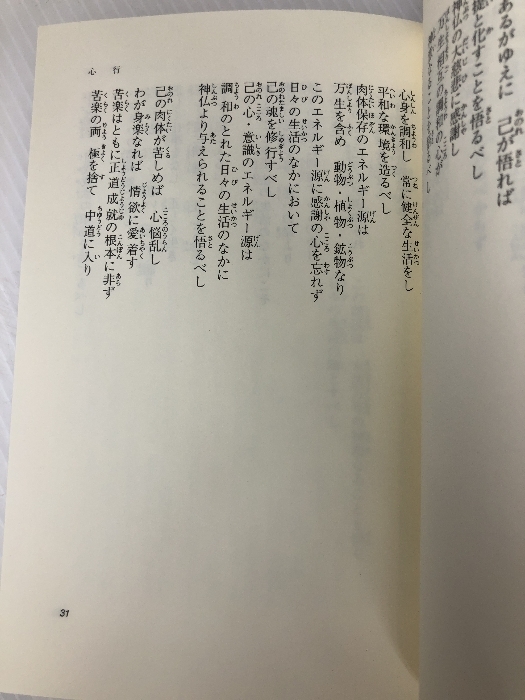 あるがゆえに 己が悟れば
提と化すことを悟るべし
神仏の大慈悲に感謝し
心行
心身を調和し 常に健全な生活をし
平和な環境を造るべし
肉体保存のエネルギー源は
万生を含め 動物・植物・鉱物なり
このエネルギー源に感謝の心を忘れず
日々の生活のなかにおいて
己の魂を修行すべし
己の心・意識のエネルギー源は
調和のとれた日々の生活のなかに
神仏より与えられることを悟るべし
己の肉体が苦しめば 心悩乱し
わが身楽なれば 情欲に愛着す
苦楽はともに正道成就の根本に非ず
苦楽の両極を捨て 中道に入り
31